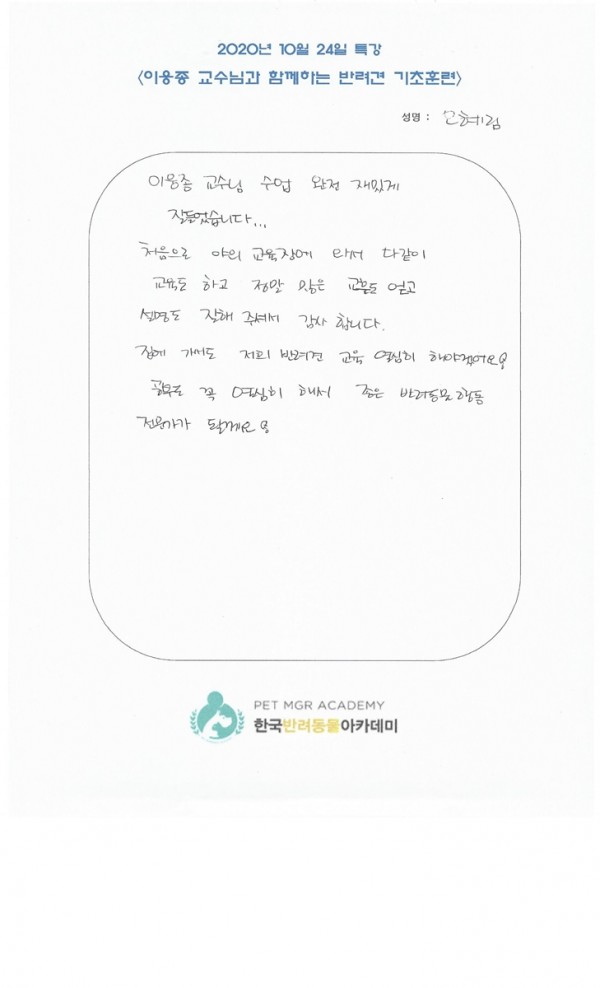 2020년 10월 24일 특강
<이웅종 교수님과 함께하는 반려견 기초훈련>
성명 : 문혜림
이웅종 교수님 수업 완전 재밌게
잘들었습니다...
처음으로 야외 교육장에 와서 다같이
교육도 하고 정말 많은 교훈도 얻고
설명도 잘해 주셔서 감사 합니다.
집에 가서도 저희 반려견 교육 열심히 해야겠어요!
공부도 꼭 열심히 해서 좋은 반려동물행동
전문가가 될게요!
PET MGR ACADEMY
한국반려동물아카데미